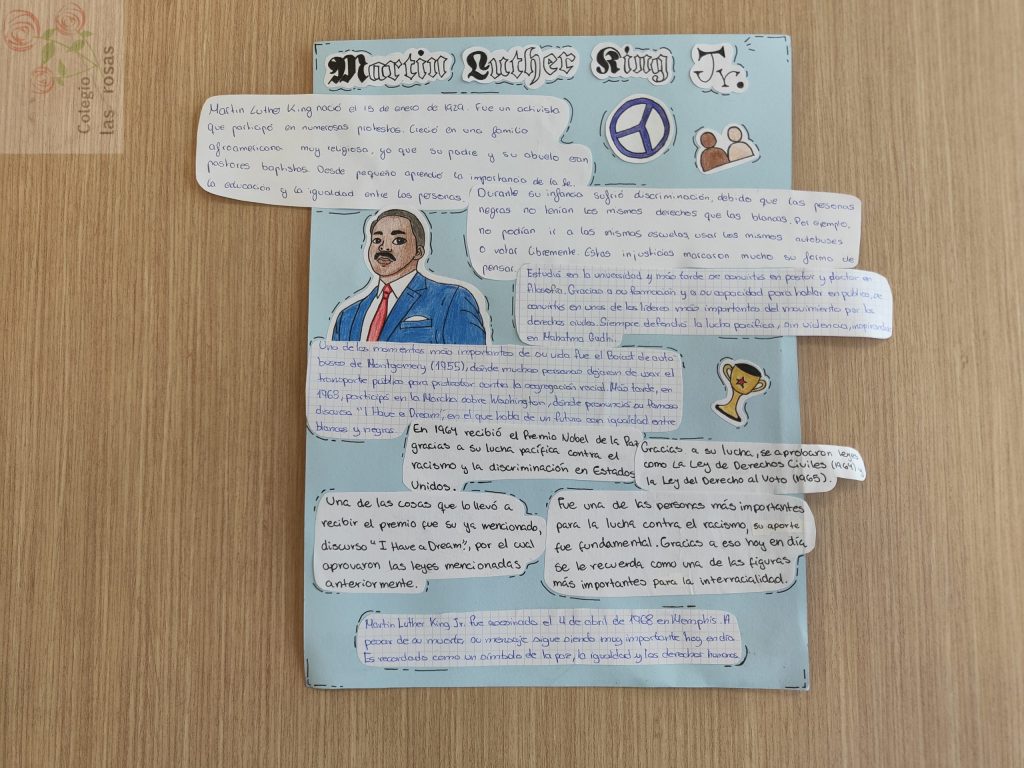 Colegio
las rosas
Martin Luther King Jr.
Martin Luther King nació el 15 de enero de 1929. Fue un activista
que participó en numerosas protestas. Creció en una familia
afroamericana muy religiosa, ya que su padre y su abuelo eran
pastores baptistas. Desde pequeño aprendió la importancia de la fe,
la educación y la igualdad entre las personas.
Durante su infancia sufrió discriminación, debido que las personas
negras no tenían los mismos derechos que las blancas. Por ejemplo,
no podían ir a las mismas escuelas, usar los mismos autobuses
o votar libremente. Estas injusticias marcaron mucho su forma de
pensar.
Estudió en la universidad y más tarde se convirtió en pastor y doctor en
filosofía. Gracias a su formación y a su capacidad para hablar en público, se
convirtió en unos de los líderes más importantes del movimiento por los
derechos civiles. Siempre defendió la lucha pacífica, sin violencia, inspirandose
en Mahatma Gudhi.
Uno de los momentos más importantes de su vida fue el Boicot de auto
buses de Montgomery (1955), dónde muchas personas dejaron de usar el
transporte público para protestar contra la segregación racial. Más tarde, en
1963, participó en la Marcha sobre Washington, dónde pronunció su famoso
discurso "I Have a Dream", en el que habla de un futuro con igualdad entre
blancos y negros.
En 1964 recibió el Premio Nobel de la Paz
gracias a su lucha pacífica contra el
racismo y la discriminación en Estados
Unidos.
Gracias a su lucha, se aprobaron leyes
como La Ley de Derechos Civiles (1964) y
la Ley del Derecho al Voto (1965).
Una de las cosas que lo llevó a
recibir el premio fue su ya mencionado,
discurso "I Have a Dream", por el cual
aprovaron las leyes mencionadas
anteriormente.
Fue una de las personas más importantes
para la lucha contra el racismo, su aporte
fue fundamental. Gracias a eso hoy en día
se le recuerda como una de las figuras
más importantes para la interracialidad.
Martin Luther King Jr. fue asesinado el 4 de abril de 1968 en Memphis. A
pesar de su muerte, su mensaje sigue siendo muy importante hoy en día.
Es recordado como un símbolo de la paz, la igualdad y los derechos humanos.